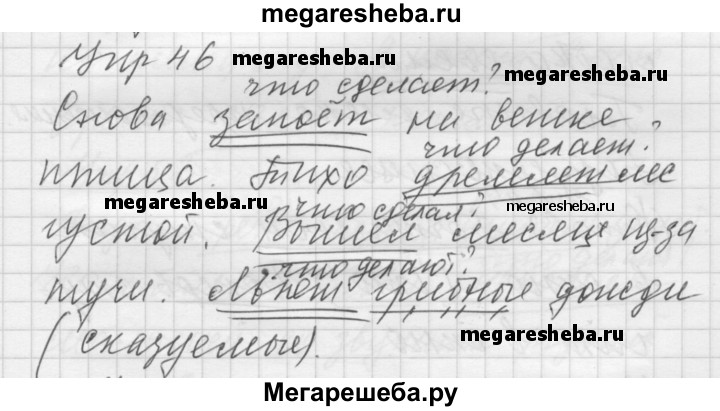 megaresheba.ru
Упр 46
megaresheba.ru
megaresheba.ru
что сделает?
Снова запоёт на ветке
что делает?
птица. Тихо дремлет лес
megaresheba.ru
что сделал?
megaresheba.ru
густой. Вышел месяц из-за
что делают?
тучи. Льют грибные дожди
(сказуемые).
megaresheba.ru
Мегарешеба.ру